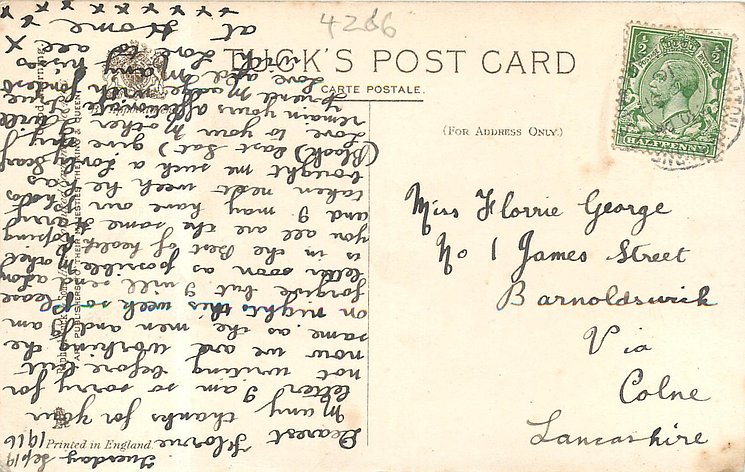 4266
TUCK'S POST CARD
CARTE POSTALE.
(FOR ADDRESS ONLY.)
HALFPENNY
Miss Florrie George
No 1 James Street
Barnoldswick
Via
Colne
Lancashire
Printed in England
Tuesday Sep 19
1916
Dearest Florrie
Many thanks for your
letter I am so sorry for
not writing before but
now we are working the
same as the men and I am
on nights this week so please
forgive but I will send a long
letter as soon as possible
is in the Best of health hoping
you all are the same Harry
and I may have our
taken next week he has
bought me such a lovely scarf
(Black) last Sat) give my
Love to your Mother
remain yours affectionate true
Friend with
Love
with Love to all
at Home
X X X X X X X X
X